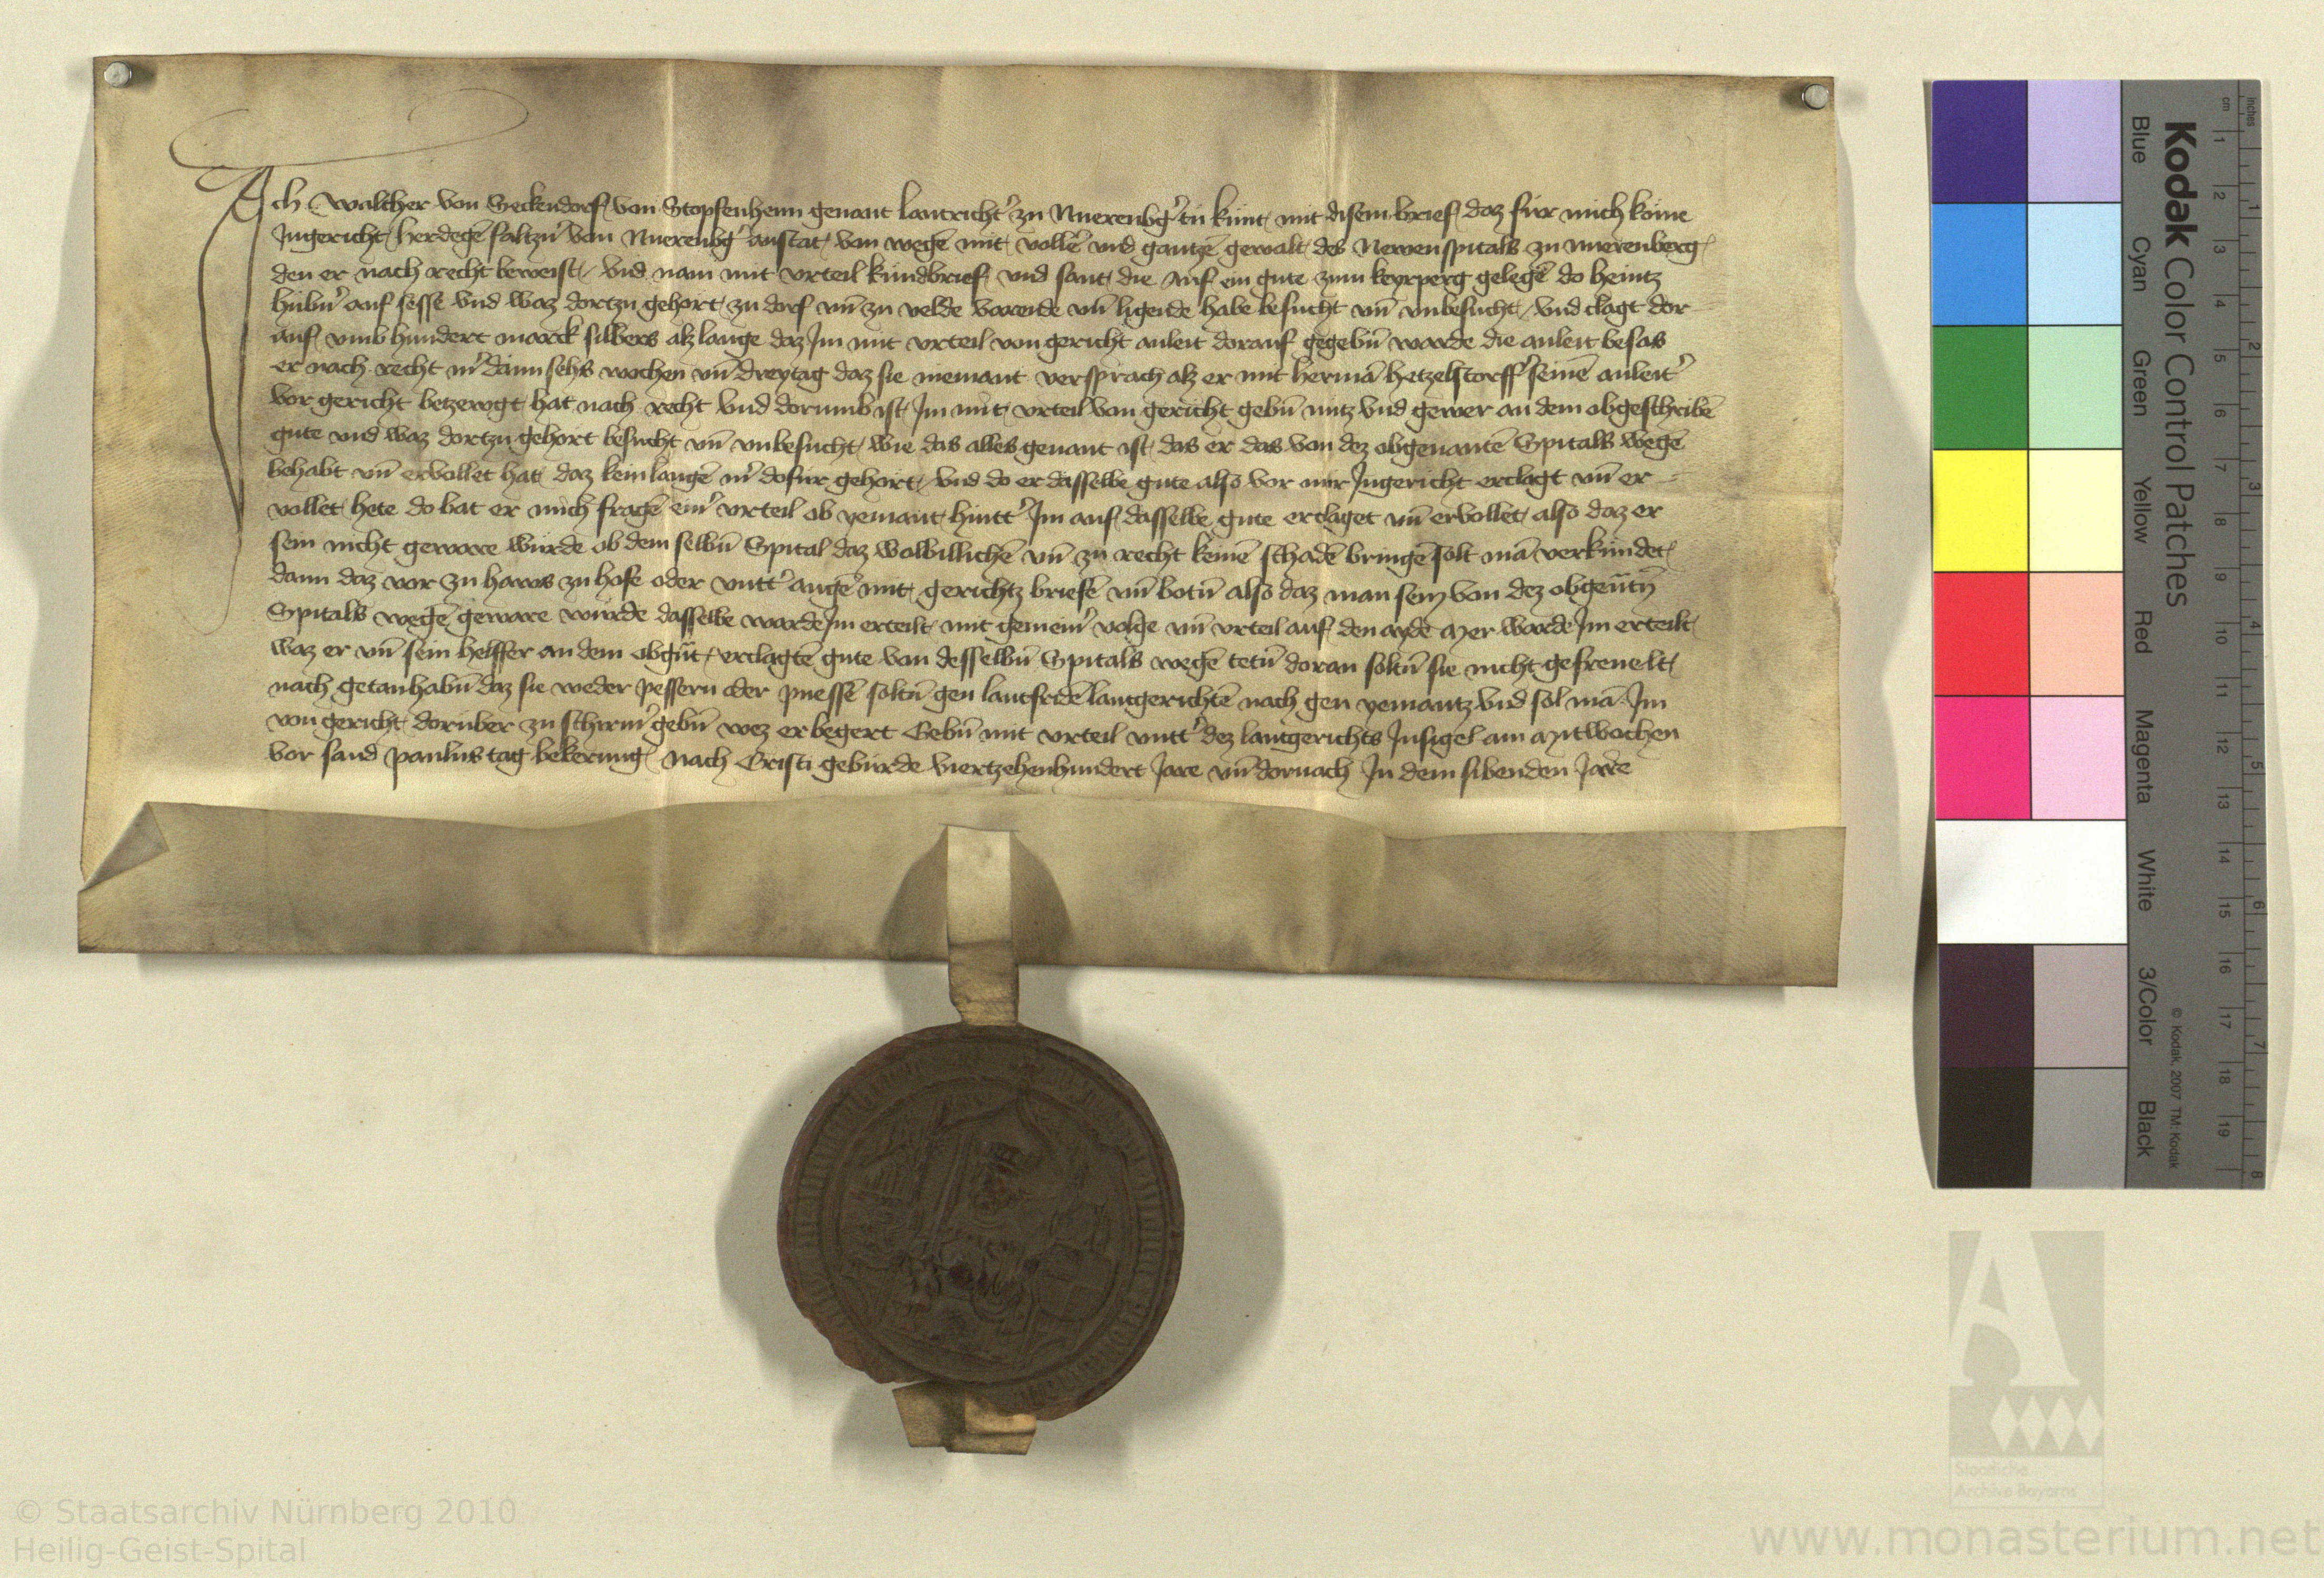 Ich Walther von Seckendorf von Stopfenheim genant lantricht' zu Nuerenbg' tu kunt mit disem brief daz für mich kome
Ingericht herdegē faltzn' von Nuerenbg' anstat von wegē mit vollē vnd gantzē gewalt des Newen spitals zu nuerenberg
den er nach recht beweist vnd nam mit vrteil kundbrief vnd sant die auf ein gute zum keyrperg gelegē do heintz
hubn' auf sesse vnd waz dortzu gehort zu dorf vn̄ zu velde varende vn̄ ligende habe besucht vn̄ vnbesucht vnd clagt dor
auf vmb hundert marck silbers alz lange daz Im mit vrteil von gericht anleit dorauf gegebn̄ warde die anleit besas
er nach recht m' dann sehs wochen vn̄ dreytag daz sie niemant versprach alz er mit hermā hetzelstorff' seinē anleit'
vor gericht betzewgt hat nach recht vnd dorumb ist Im mit vrteil von gericht gebn̄ nutz vnd gewer an dem obgeschribē
gute vnd waz dortzu gehort besucht vn̄ vnbesucht wie das alles genant ist das er das von dez obgenantē Spitals wegē
behabt vn̄ ervollet hat daz kein langē m' dofur gehort vnd do er dasselbe gute also vor mir Ingericht erclagt vn̄ er
vollet hete do bat er mich fragē ein' vrteil ob yemant hintt' Im auf dasselbe gute erclaget vn̄ ervollet also daz er
sein nicht geware wurde ob dem selbn̄ Spital daz wolbillichē vn̄ zu recht keinē schadē bringē solt mā verkundet
dann daz vor zu haws zu hofe oder vntt' augē mit gerichtz briefē vn̄ botn̄ also daz man sein von dez obgen̄tn̄
Spitals wegē geware wurde dasselbe warde Im erteilt mit gemein' volge vn̄ vrteil auf den ayde Mer warde Im erteilt
waz er vn̄ sein helffer an dem obgn̄t erclagtē gute von desselbn̄ Spitals wegē tetn̄ doran soltn̄ sie nicht gefreuelt
nach getanhabn̄ daz sie weder pessern oder puessē soltn̄ gen lantfridē lantgerichtē nach gen yemantz vnd sol mā Im
von gericht doruber zu schirm' gebn̄ wez er begert Gebn̄ mit vrteil vntt' dez lantgerichts Insigel am Mitwochen
vor sand paulus tag bekerung nach Cristi geburde viertzehenhundert Jare vn̄ dornach In dem sibenden Jare
Kodak Color Control Patches
Blue Cyan Green Yellow Red Magenta White 3/Color Black
© Kodak, 2007 TM: Kodak
cm 1 2 3 4 5 6 7 8 9 10 11 12 13 14 15 16 17 18 19
Inches 1 2 3 4 5 6 7 8
A
Staatliche
Archive Bayerns
© Staatsarchiv Nürnberg 2010
Heilig-Geist-Spital
www.monasterium.net